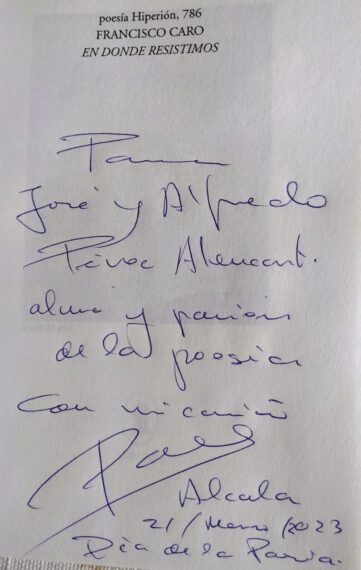 poesía Hiperión, 786
FRANCISCO CARO
EN DONDE RESISTIMOS
Para
José y Alfredo
Pérez Alencart.
alma y pasión
de la poesía
con mi cariño
Alcala
21/Marzo/2023
Día de la Poesía.